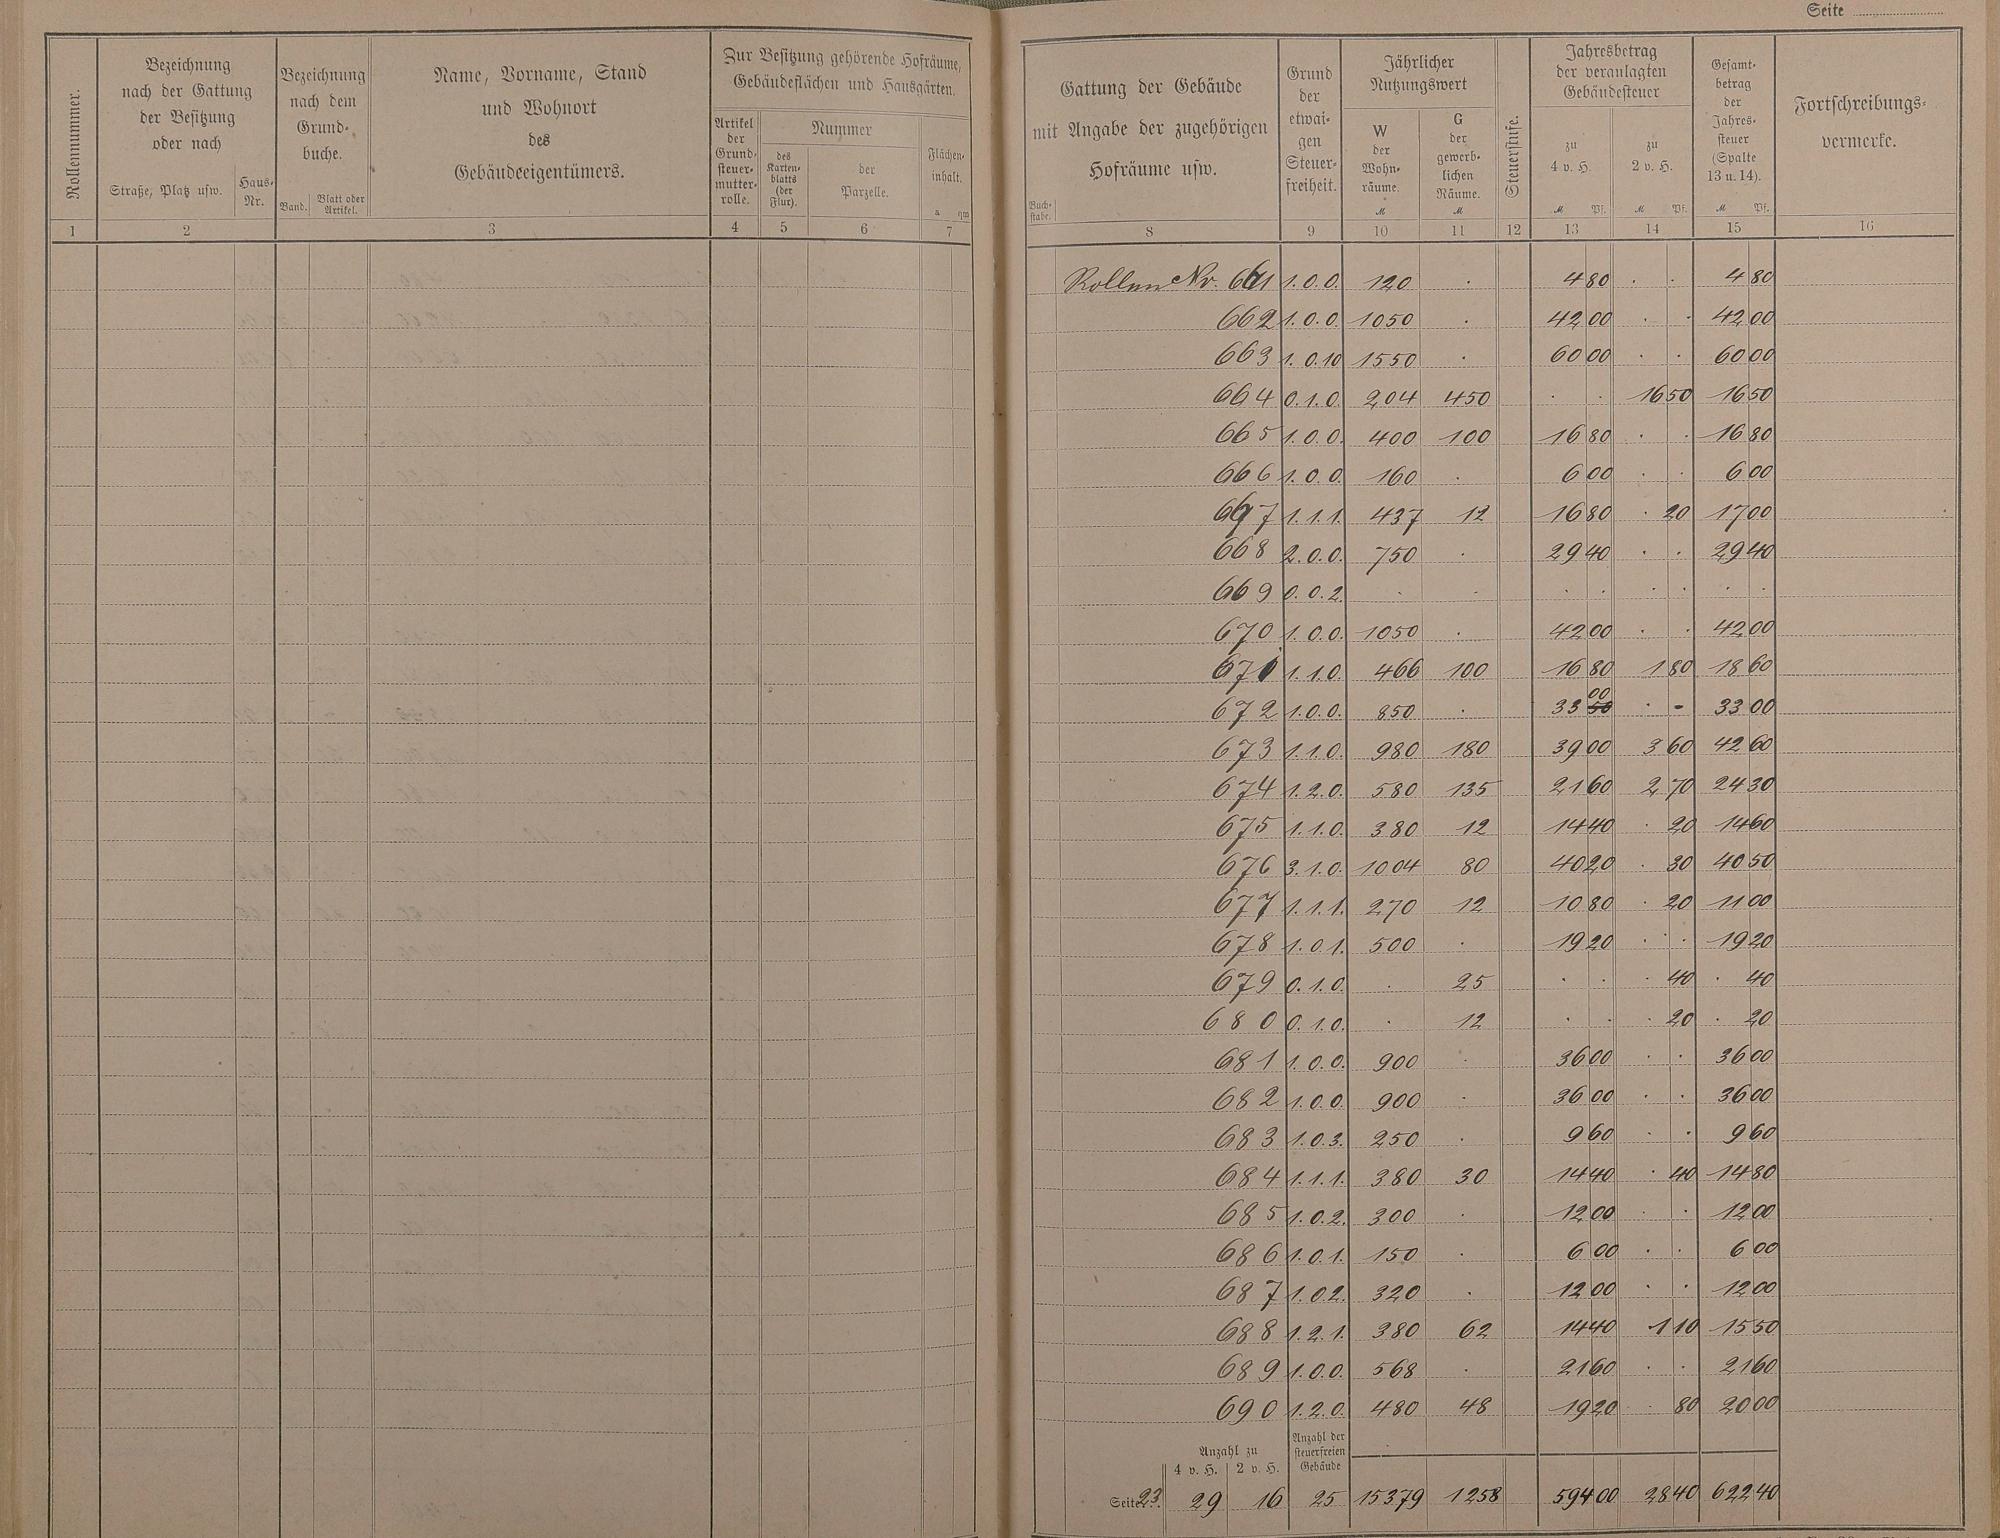 Seite
Rollennummer.
Bezeichnung
nach der Gattung
der Besitzung
oder nach
Straße, Platz usw.
Haus-
Nr.
Bezeichnung
nach dem
Grund-
buche.
Band.
Blatt oder
Artikel.
Name, Vorname, Stand
und Wohnort
des
Gebäudeeigentümers.
Zur Besitzung gehörende Hofräume,
Gebäudeflächen und Hausgärten.
Artikel
der
Grund-
steuer-
mutter-
rolle.
Nummer
des
Karten-
blatts
(der
Flur).
der
Parzelle.
Flächen-
inhalt.
a qm
1 2 3 4 5 6 7
Gattung der Gebäude
mit Angabe der zugehörigen
Hofräume usw.
Buch-
stabe.
Grund
der
etwai-
gen
Steuer-
freiheit.
Jährlicher
Nutzungswert
W
der
Wohn-
räume.
M
G
der
gewerb-
lichen
Räume.
M
Steuerstufe.
Jahresbetrag
der veranlagten
Gebäudesteuer
zu
4 v. H.
M Pf.
zu
2 v. H.
M Pf.
Gesamt-
betrag
der
Jahres-
steuer
(Spalte
13 u. 14).
M Pf.
Fortschreibungs-
vermerke.
8 9 10 11 12 13 14 15 16
Rollen Nr. 661 1.0.0. 120 . 4 80 . . 4 80
662 1.0.0. 1050 . 42 00 . . 42 00
663 1.0.10 1550 . 60 00 . . 60 00
664 0.1.0. 204 450 . . 16 50 16 50
665 1.0.0. 400 100 16 80 . . 16 80
666 1.0.0. 160 . 6 00 . . 6 00
667 1.1.1. 437 12 16 80 . 20 17 00
668 2.0.0. 750 . 29 40 . . 29 40
669 0.0.2. . . . . . . . .
670 1.0.0. 1050 . 42 00 . . 42 00
671 1.1.0. 466 100 16 80 1 80 18 60
672 1.0.0. 850 . 33 50 00 . - 33 00
673 1.1.0. 980 180 39 00 3 60 42 60
674 1.2.0. 580 135 21 60 2 70 24 30
675 1.1.0. 380 12 14 40 . 20 14 60
676 3.1.0. 1004 80 40 20 . 30 40 50
677 1.1.1. 270 12 10 80 . 20 11 00
678 1.0.1. 500 . 19 20 . . 19 20
679 0.1.0. . 25 . . . 40 . 40
680 0.1.0. . 12 . . . 20 . 20
681 1.0.0. 900 . 36 00 . . 36 00
682 1.0.0. 900 . 36 00 . . 36 00
683 1.0.3. 250 . 9 60 . . 9 60
684 1.1.1. 380 30 14 40 . 40 14 80
685 1.0.2. 300 . 12 00 . . 12 00
686 1.0.1. 150 . 6 00 . . 6 00
687 1.0.2. 320 . 12 00 . . 12 00
688 1.2.1. 380 62 14 40 1 10 15 50
689 1.0.0. 568 . 21 60 . . 21 60
690 1.2.0. 480 48 19 20 . 80 20 00
Anzahl zu
4 v. H. 2 v. H.
Anzahl der
steuerfreien
Gebäude
Seite 23. 29 16 25 15379 1258 594 00 28 40 622 40